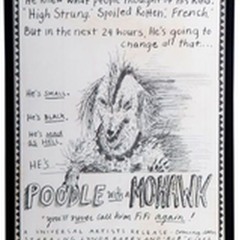 He knew what people thought of his kind.
'High Strung.' 'Spoiled Rotten.' 'French.'
But in the next 24 hours, He's going to
change all that...
He's SMALL.
He's BLACK.
He's MAD
as HELL.
HE'S
POODLE with a MOHAWK
"you'll never call him FiFi again!"
A UNIVERSAL ARTISTS RELEASE